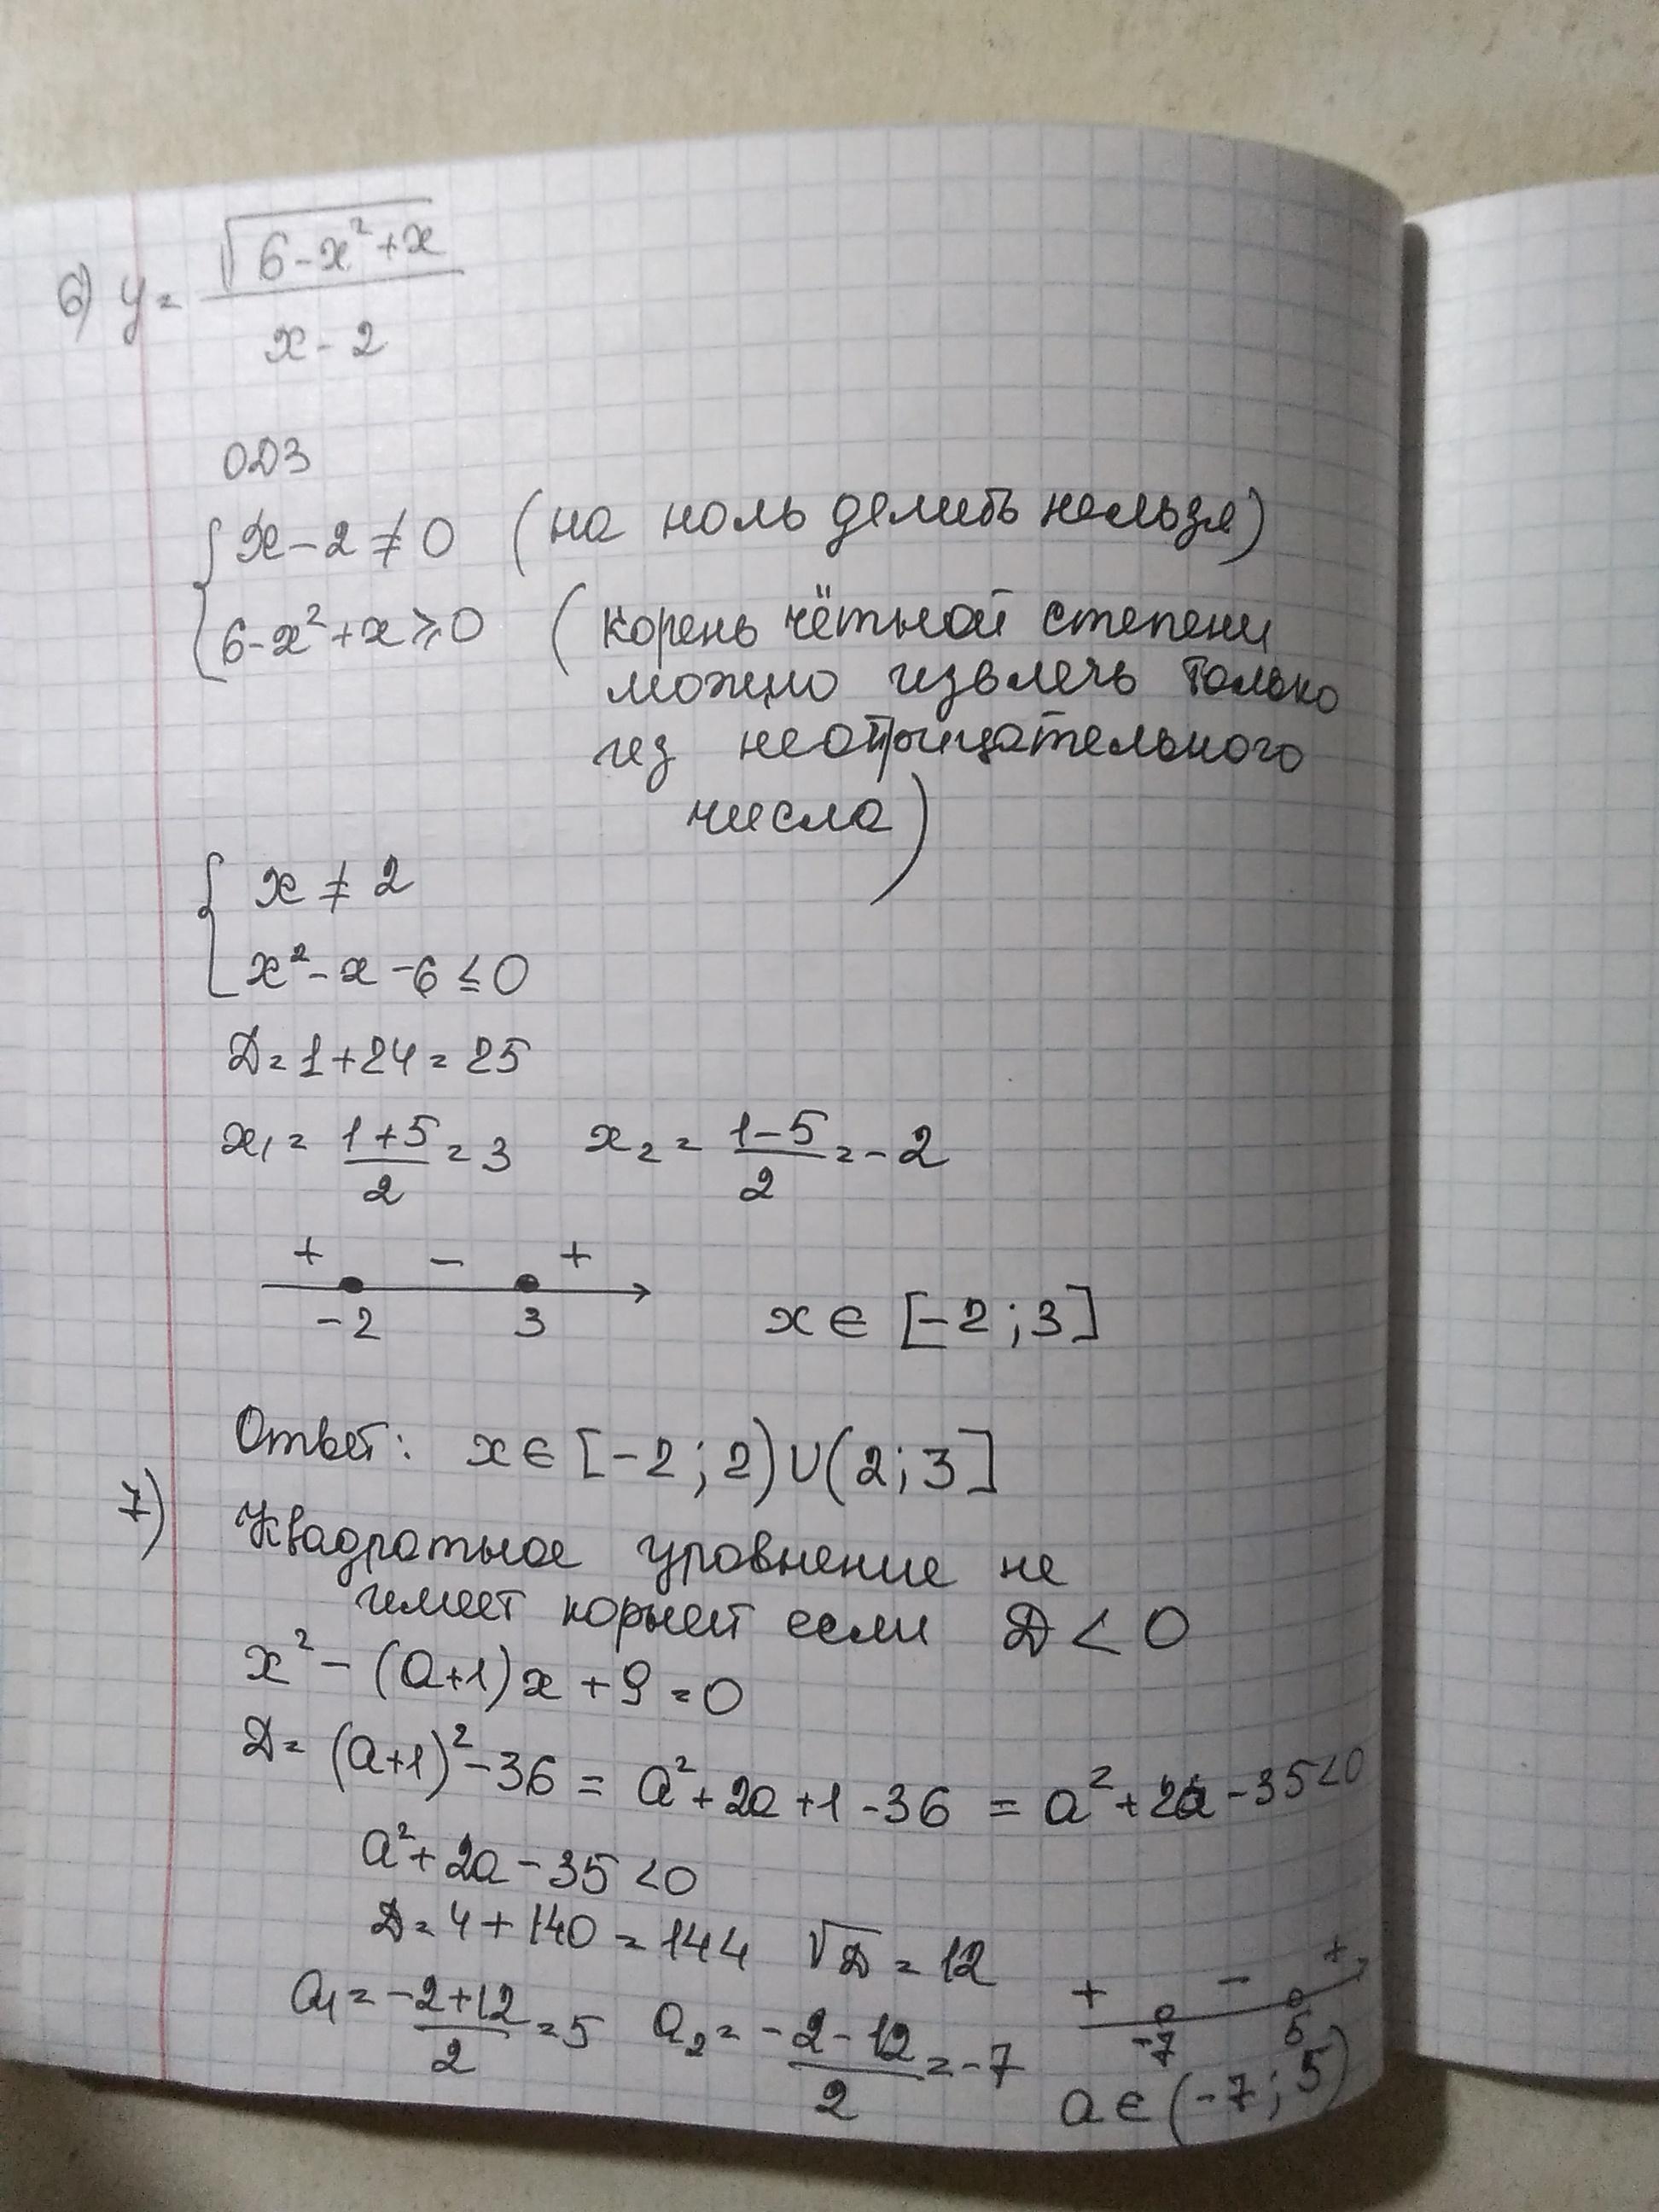 6) y = √(6-x²+x) / (x-2)
ОДЗ
{ x-2≠0 (на ноль делить нельзя)
{ 6-x²+x⩾0 (корень чётной степени
можно извлечь только
из неотрицательного
числа)
{ x ≠ 2
{ x²-x-6≤0
Д=1+24=25
x₁ = (1+5)/2 = 3 x₂ = (1-5)/2 = -2
+ - +
-2 3 x∈[-2;3]
Ответ: x∈[-2;2)∪(2;3]
7) Квадратное уравнение не
имеет корней если Д<0
x²-(a+1)x+9=0
Д=(a+1)²-36=a²+2a+1-36=a²+2a-35<0
a²+2a-35<0
Д=4+140=144 √Д=12
a₁=(-2+12)/2=5 a₂=(-2-12)/2=-7
+ - +
-7 5
a∈(-7;5)